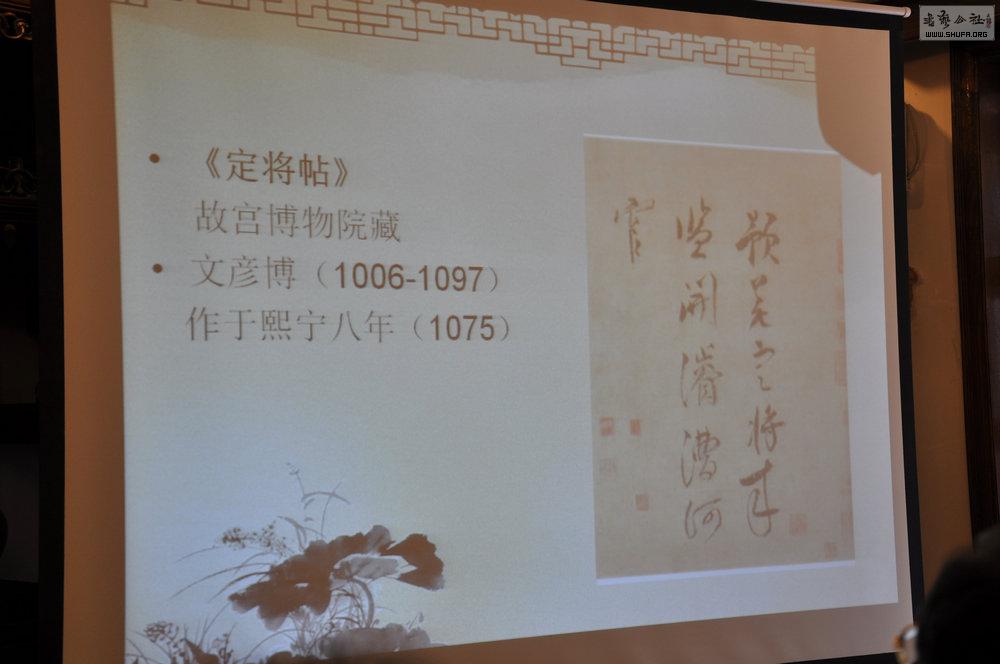 書藝公社
WWW.SHUFA.ORG
《定将帖》
故宫博物院藏
文彦博（1006-1097）
作于熙宁八年（1075）
預差定将来
监開濬漕河
官